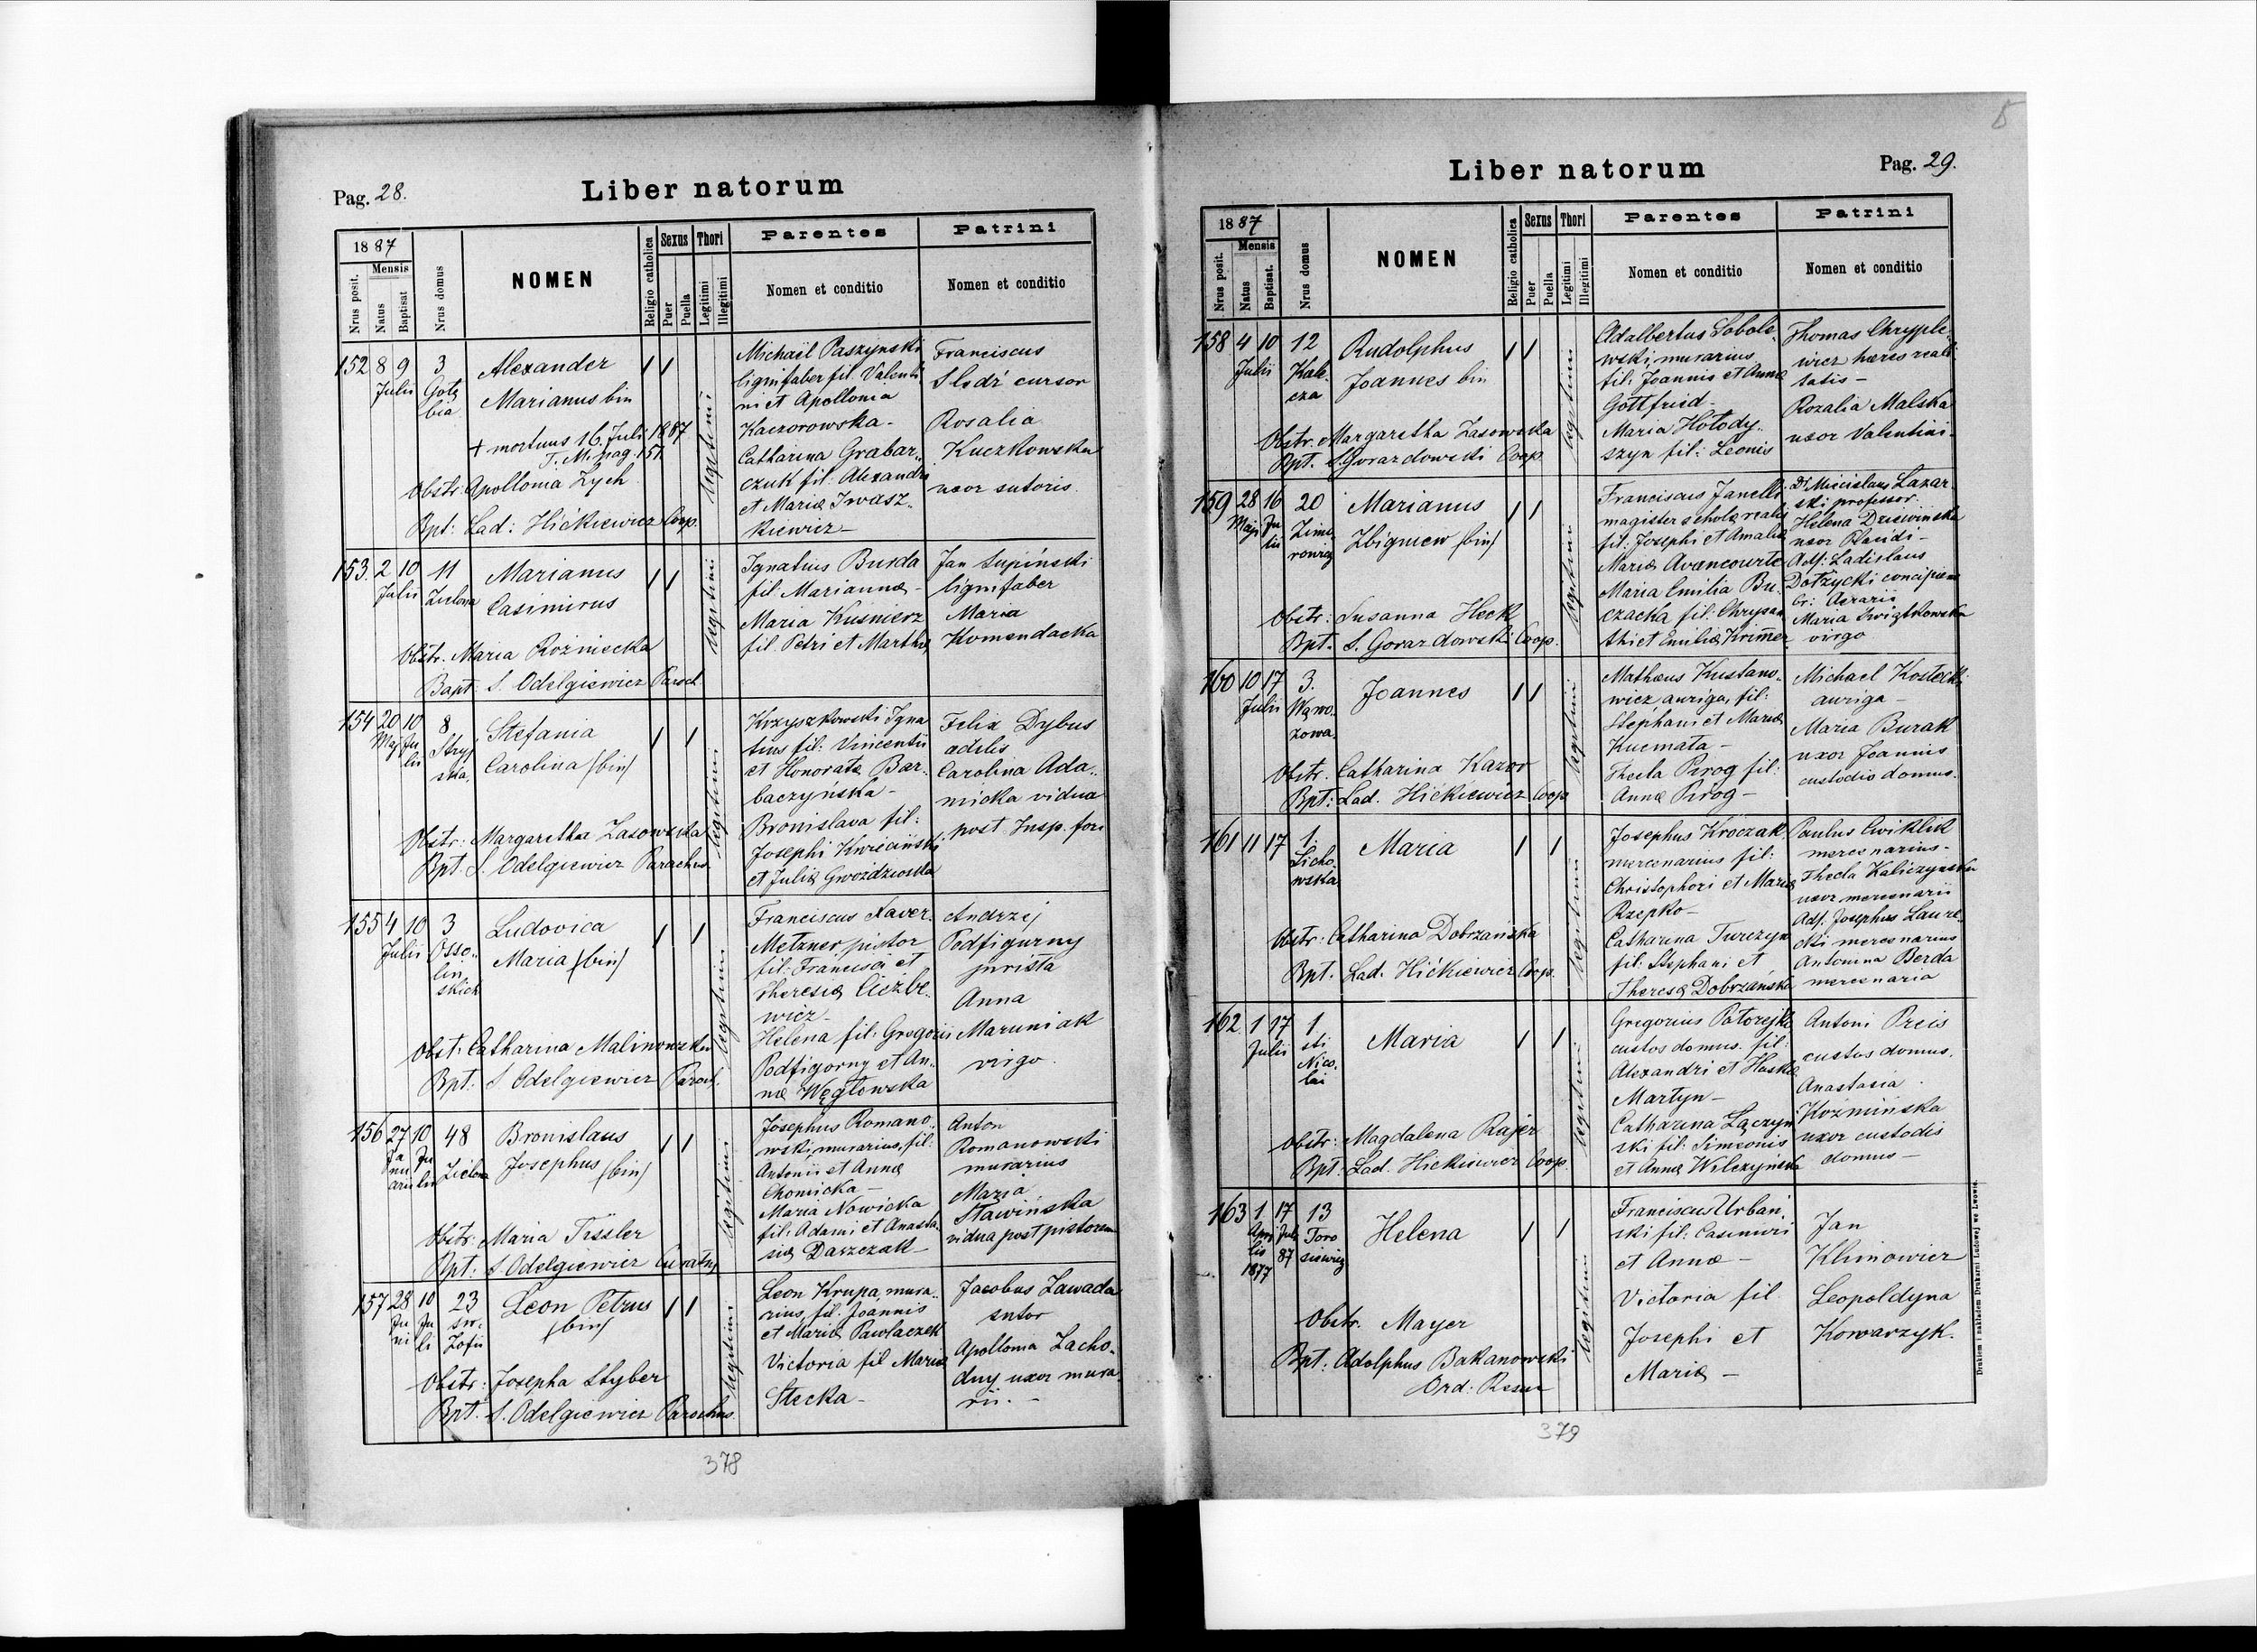 Pag. 28.
Liber natorum
1887
Nrus posit.
Mensis
Natus
Baptisat
Nrus domus
NOMEN
Religio catholica
Sexus
Puer
Puella
Thori
Legitimi
Illegitimi
Parentes
Nomen et conditio
Patrini
Nomen et conditio
152 8 9 3
Julii Gołę
bia
Alexander
Marianus bin
+ mortuus 16. Juli 1887
T. M. pag. 151
Obstr: Apollonia Zych
Bpt: Lad: Hićkiewicz Coop.
legitimi
Michaël Paszynski
lignifaber fil. Valenti
ni et Apollonia
Kaczorowska -
Catharina Grabar„
czuk fil: Alexandri
et Mariæ Iwasz„
kiewicz -
Franciscus
Sledź cursor
Rosalia
Kuczkowska
uxor sutoris.
153. 2 10 11
Julii Zielona
Marianus
Casimirus
Obstr. Maria Rozniecka
Bapt: S. Odelgiewicz Paroch
legitimi
Ignatius Burda
fil Mariannæ -
Maria Kusnierz
fil. Petri et Marthæ
Jan Łupiński
lignifaber
Maria
Komendacka
154 20 10 8
Maj Ju
lii
Stryj
ska,
Stefania
Carolina (bin)
Obstr: Margaretha Zasowska
Bpt. S. Odelgiewicz Parochus
legitimi
Krzyszkowski Igna
tius fil: Vincentii
et Honorata Bar„
baczyńska -
Bronislava fil:
Josephi Kwiciński
et Juliæ Gwoździowska
Felix Dybus
Carolina Ada„
micka vidua
post Insp. fori
155 4 10 3
Julii Osso„
lin
skich
Ludovica
Maria (bin)
Obst: Catharina Malinowska
Bpt: S. Odelgiewicz Paroch.
legitimi
Franciscus Xaver.
Metzner pistor
fil: Francisci et
Theresiæ Ciezbe„
wicz -
Helena fil: Gregorii
Podfigorny et An„
næ Węgłowska
Andrzej
Podfigurny
jurista
Anna
Maruniak
virgo.
156 27 10 48
Ja
nu
arii
Ju
lii
Zielona
Bronislaus
Josephus (bin)
Obstr: Maria Tissler
Bpt: S. Odelgiewicz Curatus
legitimi
Josephus Romano„
wski, murarius, fil:
Antonii et Annæ
Chomicka -
Maria Nowicka
fil: Adami et Anasta„
siæ Daszczak -
Anton
Romanowski
murarius
Maria
Sławińska
vidua post pistorem
157 28 10 23
Ju
ni
Ju
li
sw.
Zofii
Leon Petrus
(bin)
Obstr: Josepha Styber
Bpt. S. Odelgiewicz Parochus.
legitimi
Leon Krupa, mura„
rius, fil: Joannis
et Mariæ Pawlaczek
Victoria fil Mariæ
Stecka -
Jacobus Zawada
sutor
Apollonia Zacho„
dny uxor mura
rii. -
378
Liber natorum
Pag. 29.
1887
Nrus posit.
Mensis
Natus
Baptisat.
Nrus domus
NOMEN
Religio catholica
Sexus
Puer
Puella
Thori
Legitimi
Illegitimi
Parentes
Nomen et conditio
Patrini
Nomen et conditio
158 4 10 12
Julii Kale„
cza
Rudolphus
Joannes bin
Obstr. Margaretha Zasowska
Bpt. S. Gorazdowski Coop
legitimi
Adalbertus Sobole„
wski, murarius,
fil: Joannis et Annæ
Gottfried -
Maria Hołody„
szyn fil: Leonis
Thomas Chryple„
wicz hæres reali
tatis -
Rozalia Malska
uxor Valentini -
159 28 16 20
Maji Ju
lii
Zimo
rowicz
Marianus
Zbigniew (bin)
Obstr: Susanna Heck
Bpt. S. Gorazdowski Coop.
legitimi
Franciscus Janelli
magister scholæ realis
fil: Josephi et Amaliæ
Mariæ Avancourte
Maria Emilia Bu„
czacka fil: Chrysan
thi et Emiliæ Krimer
Dr. Miecislaus Lazar„
ski professor.
Helena
uxor Placidi -
Adf: Ladislaus
Dołżycki concipiens
Maria Swiątkowska
virgo
160 10 17 3.
Julii Wąwo„
zowa.
Joannes
Obstr. Catharina Kazor
Bpt: Lad. Hićkiewicz Coop
legitimi
Mathæus Kustano„
wicz, auriga, fil:
Stephani et Mariæ
Kucmata -
Thecla Pirog fil:
Annæ Pirog -
Michael Kostecki
auriga -
Maria Burak
uxor Joannis
custodis domus.
161 11 17 1
Licho
wska
Maria
Obstr: Catharina Dobrzańska
Bpt. Lad. Hićkiewicz Coop.
legitimi
Josephus Kroczak,
mercenarius fil:
Christophori et Mariæ
Rzepko -
Catharina Turczyn
fil: Stephani et
Theresæ Dobrzańska
Paulus Cwiklik
mercenarius -
Thecla Kaliczynska
uxor mercenarii
Adf. Josephus Laure„
cki mercenarius
Antonina Berda
mercenaria
162 1 17 1
Julii sti
Nico„
lai
Maria
Obstr: Magdalena Rajer
Bpt: Lad. Hickiewicz Coop.
legitimi
Gregorius Pátorejko
custos domus. fil:
Alexandri et Haskæ
Martyn -
Catharina Łączyn
ski fil: Simeonis
et Annæ Wilczyńska
Antoni Preis
custos domus.
Anastasia
Koźmińska
uxor custodis
domus -
163 1 17 13
Apri
lis
1877
Juli
87
Toro
siewicz
Helena
Obstr. Mayer
Bpt: Adolphus Bakanowski
Ord: Resur
legitimi
Franciscus Urbań„
ski fil: Casimiri
et Annæ -
Victoria fil.
Josephi et
Mariæ -
Jan
Klimowicz
Leopoldyna
Kowarzyk.
Drukiem i nakładem Drukarni Ludowej we Lwowie.
379